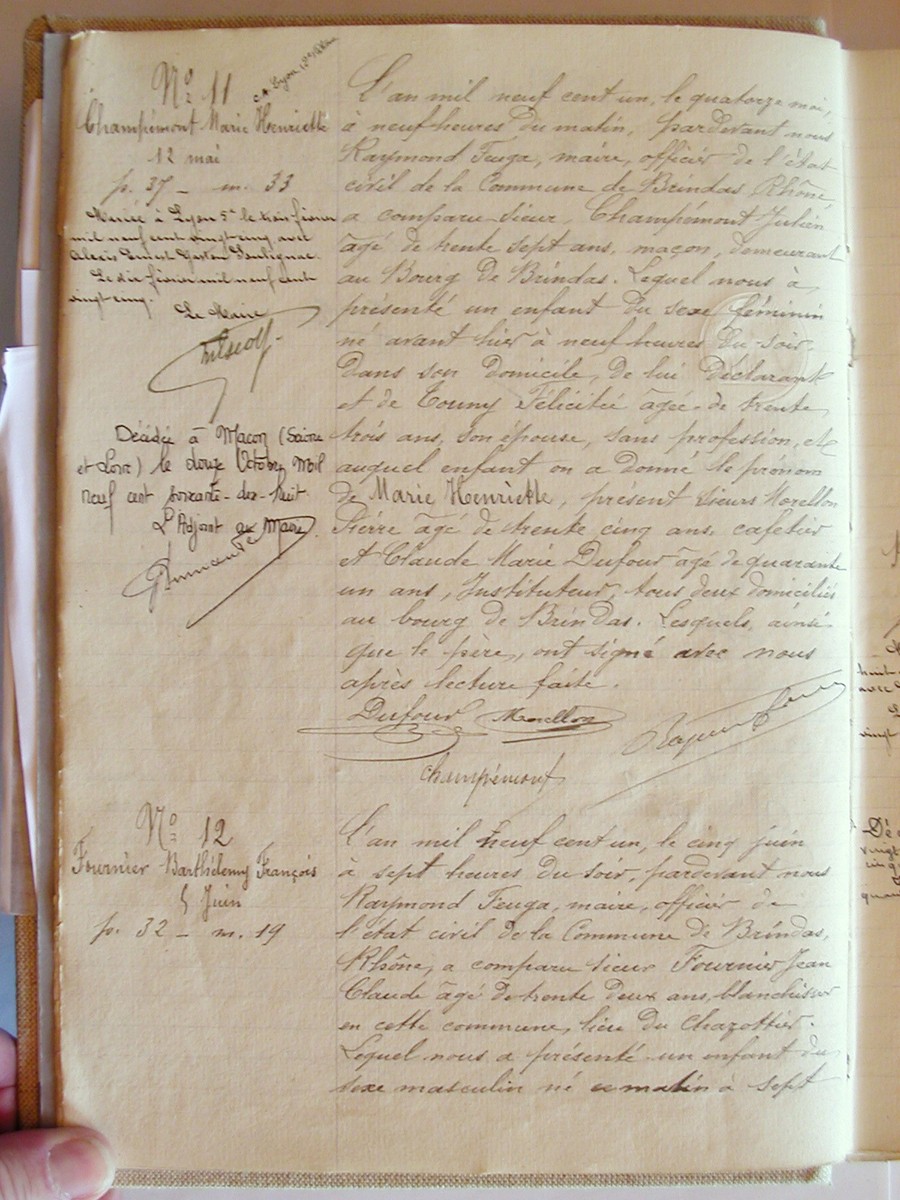 Nº 11
Champémont Marie Henriette
12 mai
p. 37 - m. 33
Mariée à Lyon 5e le trois février
mil neuf cent vingt cinq avec
Alexis Ernest Gaston
Le dix février mil neuf cent
vingt cinq.
Le Maire
Décédée à Macon (Saône
et Loire) le douze Octobre Mil
neuf cent soixante-dix-huit
L'Adjoint au Maire
L'an mil neuf cent un, le quatorze mai,
à neuf heures du matin, pardevant nous
Raymond Feuga, maire, officier de l'état
civil de la Commune de Brindas, Rhône,
a comparu sieur Champémont Julien
âgé de trente sept ans, maçon, demeurant
au Bourg de Brindas. Lequel nous à
présenté un enfant du sexe féminin
né avant hier à neuf heures du soir,
dans son domicile, de lui déclarant
et de Touny Félicité âgée de trente
trois ans, son épouse, sans profession, et
auquel enfant on a donné le prénom
de Marie Henriette, présent sieurs Morellon
Pierre âgé de trente cinq ans, cafetier
et Claude Marie Dufour âgé de quarante
un ans, Instituteur, tous deux domiciliés
au bourg de Brindas. Lesquels, ainsi
que le père, ont signé avec nous
après lecture faite.
Dufour Morellon
Champémont
Nº 12
Fournier Barthélemy François
5 Juin
p. 32 - m. 19
L'an mil neuf cent un, le cinq juin
à sept heures du soir, pardevant nous
Raymond Feuga, maire, officier de
l'état civil de la Commune de Brindas,
Rhône, a comparu sieur Fournier Jean
Claude âgé de trente deux ans, blanchisseur
en cette commune, lieu du Chazottier.
Lequel nous a présenté un enfant du
sexe masculin né ce matin à sept